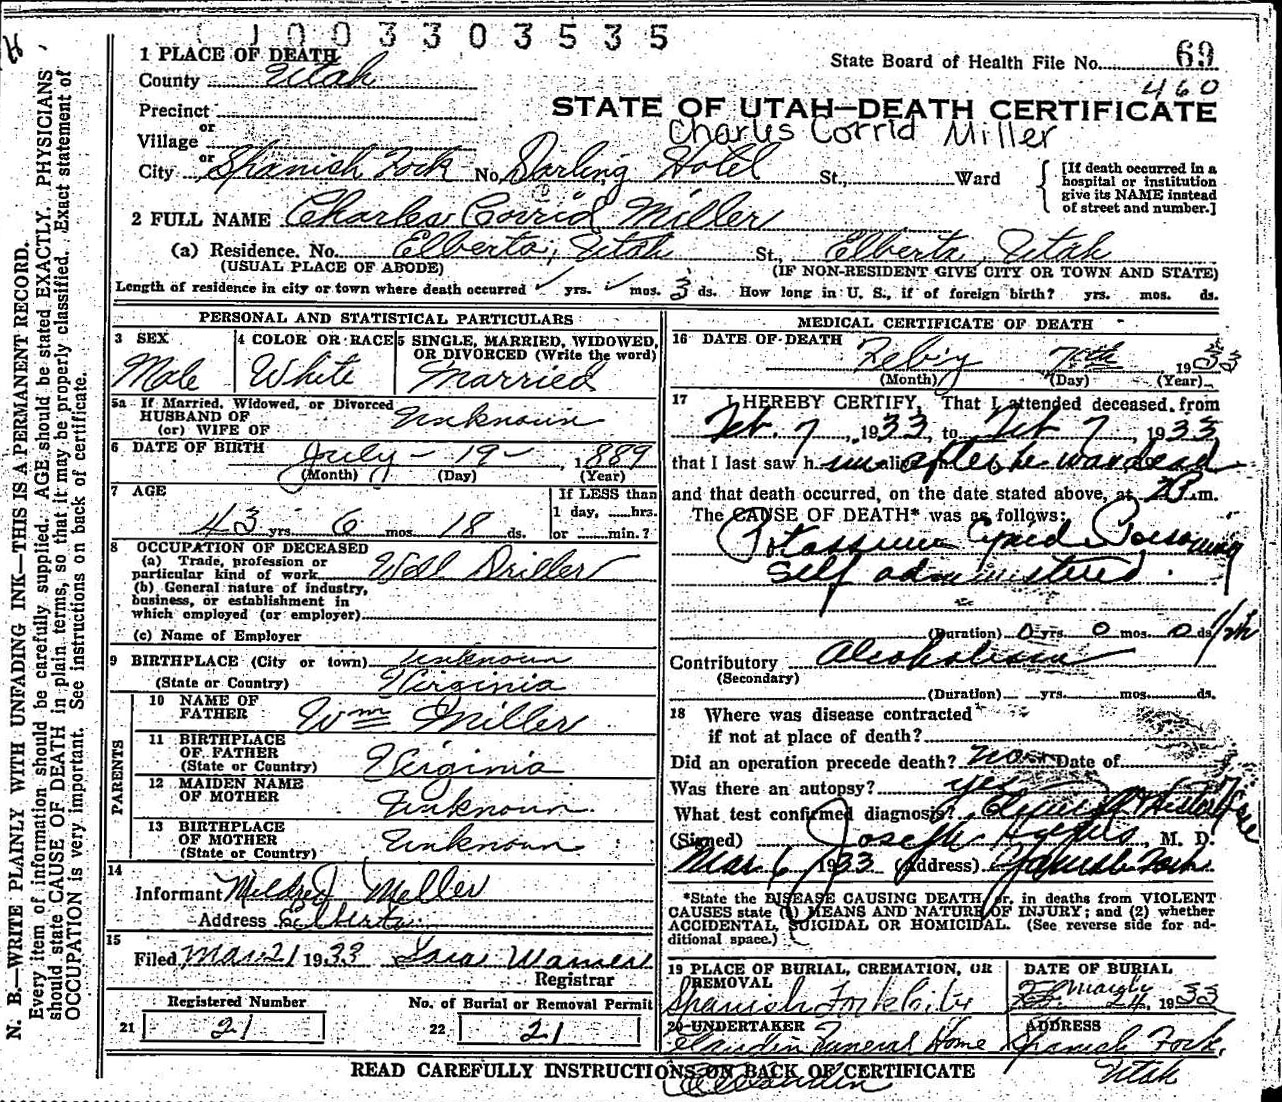 1003303535
1 PLACE OF DEATH
State Board of Health File No. 69
County Utah
460
Precinct
STATE OF UTAH—DEATH CERTIFICATE
or
Village
Charles Corrid Miller
or
City Spanish Fork No. Darling Hotel St., Ward
[If death occurred in a hospital or institution give its NAME instead of street and number.]
2 FULL NAME Charles Corrid Miller
(a) Residence. No. Elberta, Utah St., Elberta, Utah
(USUAL PLACE OF ABODE) (IF NON-RESIDENT GIVE CITY OR TOWN AND STATE)
Length of residence in city or town where death occurred yrs. mos. 3 ds. How long in U. S., if of foreign birth? yrs. mos. ds.
PERSONAL AND STATISTICAL PARTICULARS
3 SEX
Male
4 COLOR OR RACE
White
5 SINGLE, MARRIED, WIDOWED,
OR DIVORCED (Write the word)
Married
5a If Married, Widowed, or Divorced
HUSBAND OF
(or) WIFE OF
Unknown
6 DATE OF BIRTH July - 19 - , 1889
(Month) (Day) (Year)
7 AGE
43 yrs. 6 mos. 18 ds.
If LESS than
1 day, hrs.
or min.?
8 OCCUPATION OF DECEASED
(a) Trade, profession or
particular kind of work Well Driller
(b) General nature of industry,
business, or establishment in
which employed (or employer)
(c) Name of Employer
9 BIRTHPLACE (City or town) Unknown
(State or Country) Virginia
PARENTS
10 NAME OF
FATHER Wm Miller
11 BIRTHPLACE
OF FATHER
(State or Country) Virginia
12 MAIDEN NAME
OF MOTHER Unknown
13 BIRTHPLACE
OF MOTHER
(State or Country) Unknown
14
Informant Mildred Miller
Address Elberta
15
Filed Mar 21 1933
Registrar
Registered Number
21 21
No. of Burial or Removal Permit
22 21
MEDICAL CERTIFICATE OF DEATH
16 DATE OF DEATH
Feb'ry 7th 1933
(Month) (Day) (Year)
17 I HEREBY CERTIFY, That I attended deceased from
Feb. 7, 1933, to Feb 7, 1933
that I last saw him alive after he was dead
and that death occurred, on the date stated above, at m.
The CAUSE OF DEATH* was as follows:
Potassium Cynid Poisoning
self administered.
(Duration) 0 yrs. 0 mos. 0 ds.
Contributory Alcoholism
(Secondary)
(Duration) yrs. mos. ds.
18 Where was disease contracted
if not at place of death?
Did an operation precede death? no Date of
Was there an autopsy? yes
What test confirmed diagnosis?
(Signed) Joseph Hughes, M. D.
Mar 6, 1933 (Address) Spanish Fork
*State the DISEASE CAUSING DEATH, or, in deaths from VIOLENT
CAUSES state (1) MEANS AND NATURE OF INJURY; and (2) whether
ACCIDENTAL, SUICIDAL OR HOMICIDAL. (See reverse side for ad-
ditional space.)
19 PLACE OF BURIAL, CREMATION, OR
REMOVAL
Spanish Fork City
DATE OF BURIAL
24, 1933
20 UNDERTAKER
Claudin Funeral Home
ADDRESS
Spanish Fork,
Utah
READ CAREFULLY INSTRUCTIONS ON BACK OF CERTIFICATE
N. B.—WRITE PLAINLY WITH UNFADING INK—THIS IS A PERMANENT RECORD.
Every item of information should be carefully supplied. AGE should be stated EXACTLY. PHYSICIANS
should state CAUSE OF DEATH in plain terms, so that it may be properly classified. Exact statement of
OCCUPATION is very important. See instructions on back of certificate.